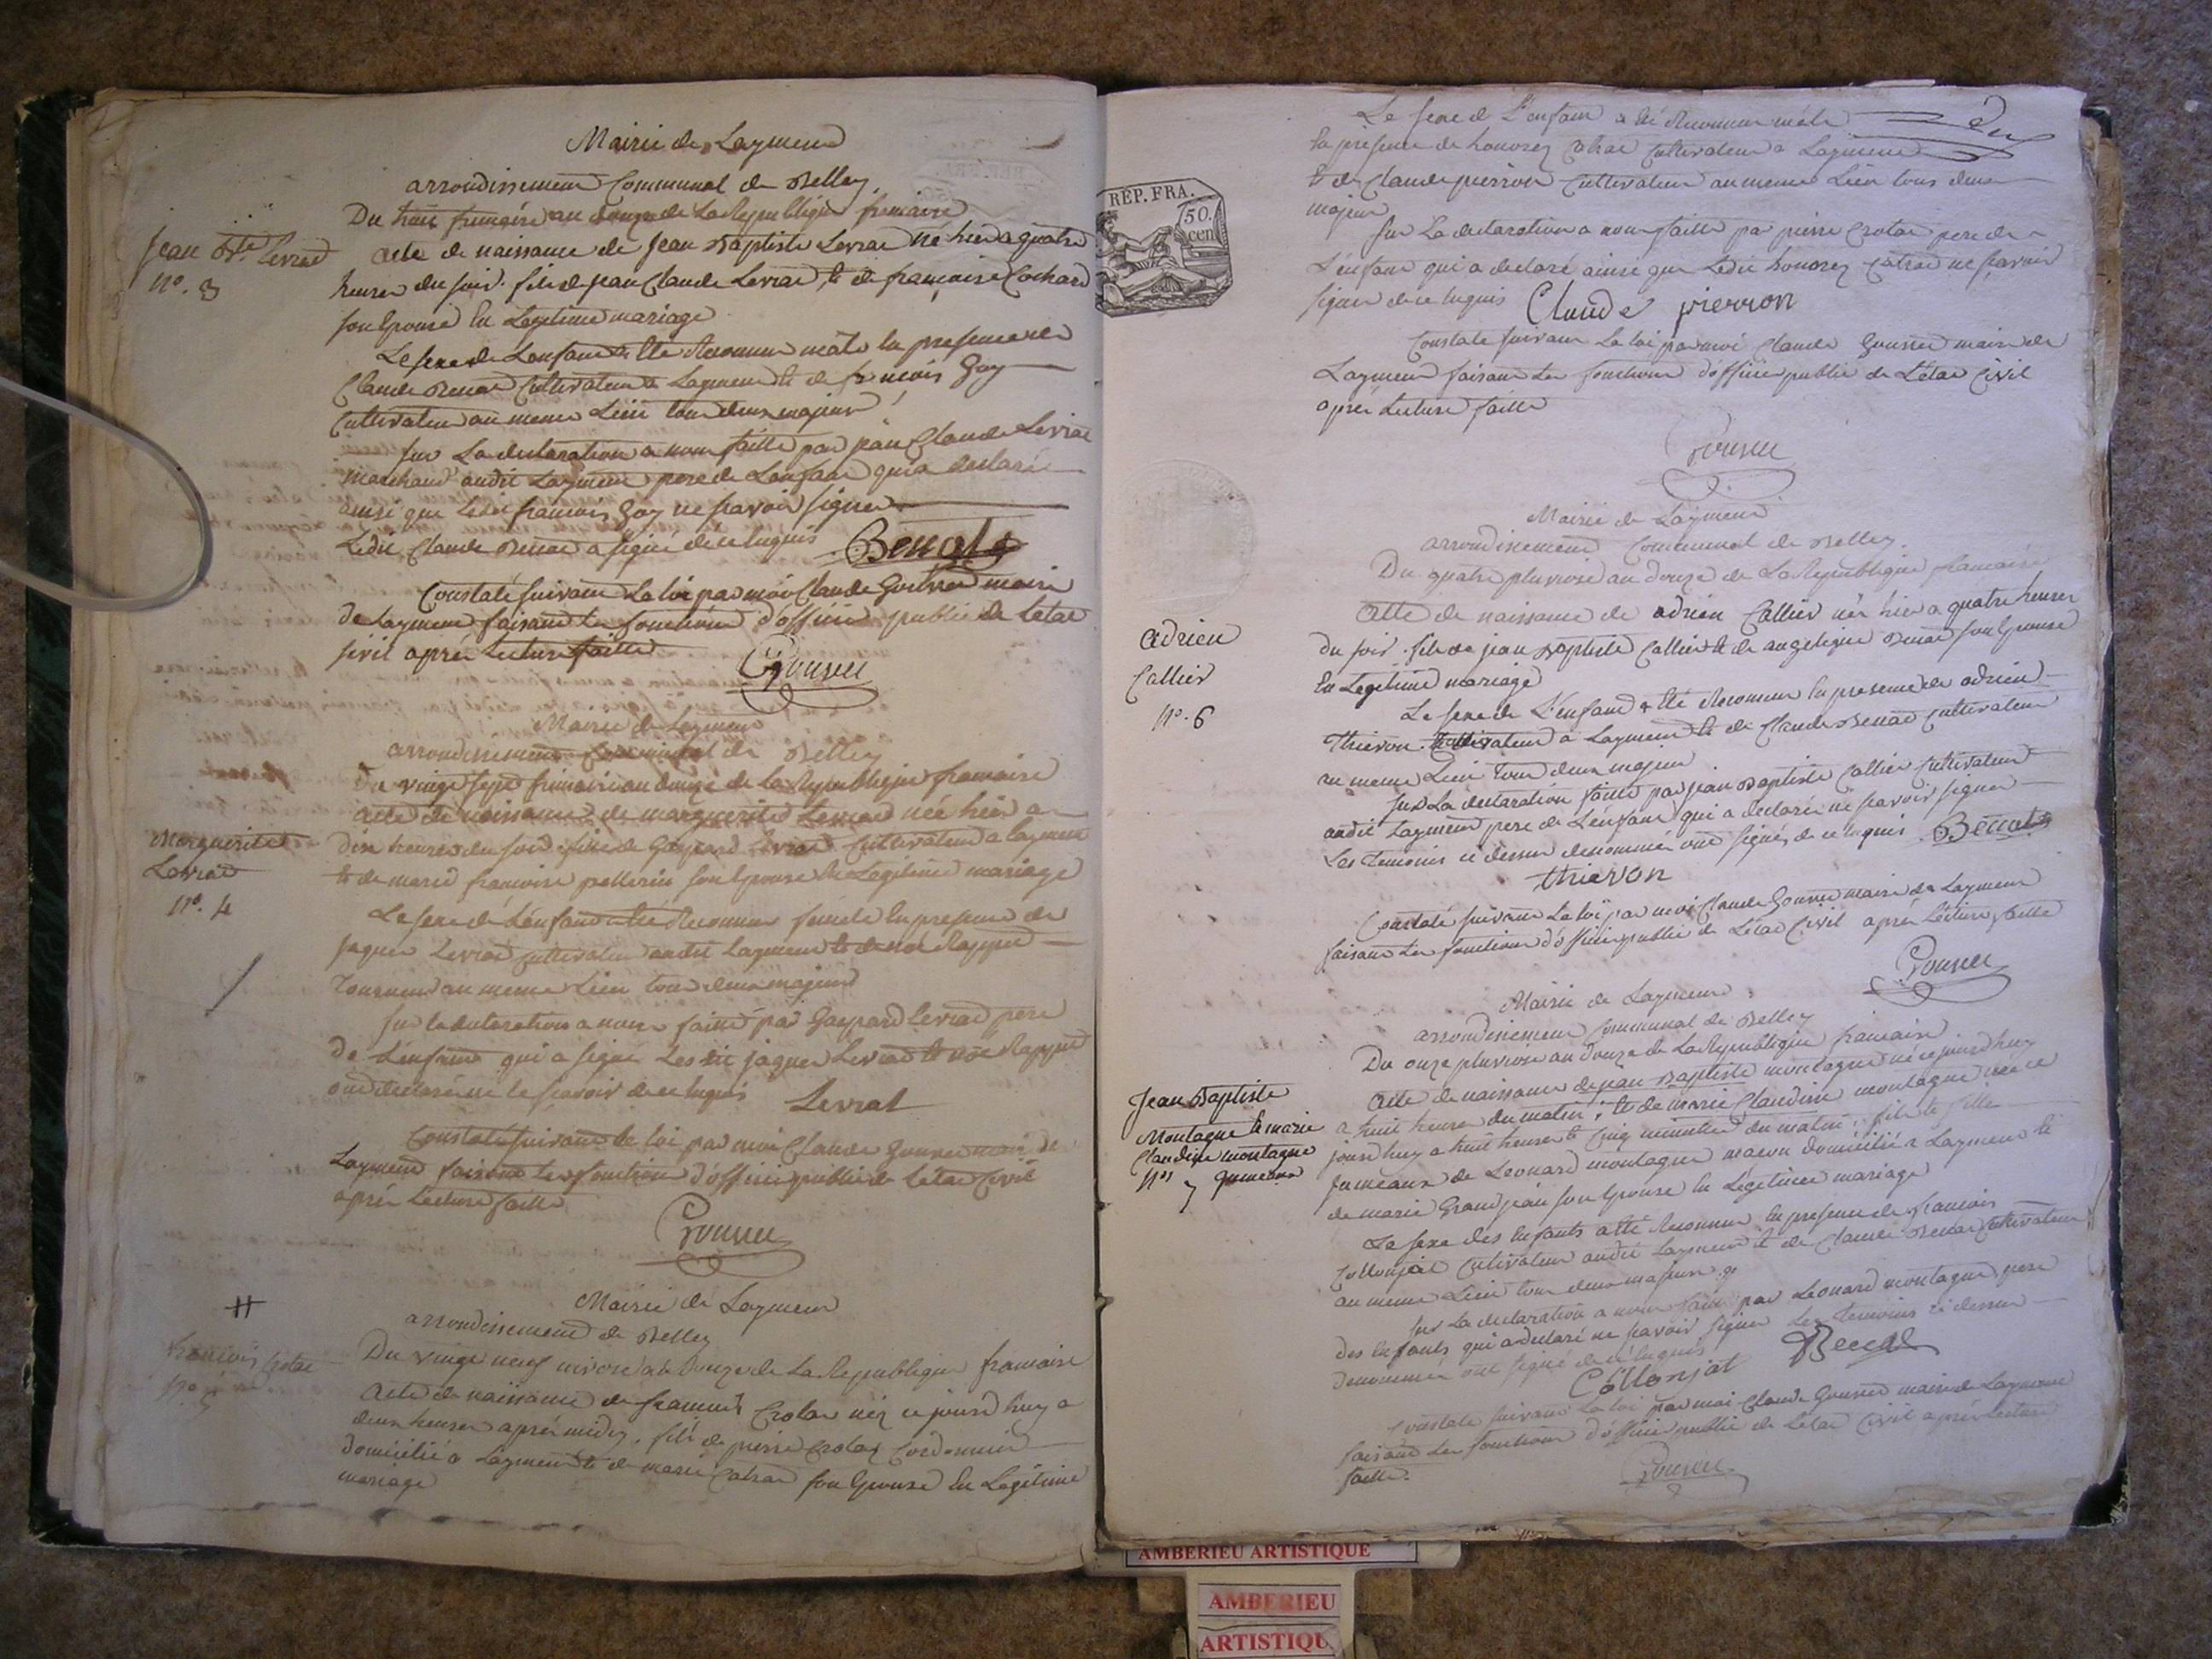 Mairie de Laymeux
arrondissement Communal de Belley
Du huit frimaire an douze de La Republique francaise
Jean Bte Levrat
No. 3
acte de naissance de Jean Baptiste Levrat né hier a quatre
heures du soir. fils de jean Claude Levrat et de francoise Cochard
son Epouse En Legitime mariage
Le sexe de Lenfant a Eté Reconnu mâle En presence de
Claude Benat Cultivateur a Laymeux et de francois Goy
Cultivateur au meme Lieu tous deux majeur
sur La declaration a nous faitte par jean Claude Levrat
marchand audit Laymeux pere de Lenfant qui a declaré
ainsi que Ledit francois Goy ne scavoir signer
Ledit Claude Benat a signé de ce Enquis Benat
Constaté suivant La loi par moi Claude maire
de Laymeux faisant Les fonctions d'officier public de Letat
sivil aprés Lecture faitte
Mairie de Laymeux
arrondissement Communal de Belley
Du vingt sept frimaire an douze de la Republique francaise
Marguerite
Levrat
No. 4
acte de naissance de marguerite Levrat née hier a
dix heures du soir fille de Gaspard Levrat Cultivateur a laymeux
et de marie francoise pellerin son Epouse En Legitime mariage
Le sexe de Lenfant a Eté Reconnu femele En presence de
jaques Levrat cultivateur audit Laymeux et de
au meme Lieu tous deux majeurs
sur la declaration a nous faitte par Gaspard Levrat pere
de Lenfant qui a signé Les dit jaques Levrat et
ont declaré ne le scavoir de ce Enquis Levrat
Constaté suivant la loi par moi Claude maire de
Laymeux faisant les fonctions d'officier public de Letat Civil
aprés Lecture faitte
Mairie de Laymeux
arrondissement de Belley
Du vingt neuf nivose an Douze de La Republique francaise
francois Crolat
No. 5
acte de naissance de francois Crolat néz ce jourd'huy a
deux heures aprés midy. fils de pierre Crolat Cordonnier
domicilié a Laymeux et de marie Catrat son Epouse En Legitime
mariage
REP. FRA.
50.
cen
Le sexe de L'enfant a Eté Reconnu mâle
En presence de honorez Catrat Cultivateur a Laymeux
et de Claude pierron Cultivateur au meme Lieu tous deux
majeur
sur La declaration a nous faitte par pierre Crolat pere de
L'enfant qui a declaré ainsi que Ledit honorez Catrat ne scavoir
signer de ce Enquis Claude pierron
Constaté suivant La loi par moi Claude maire de
Laymeux faisant Les fonctions d'officier public de Létat Civil
aprés Lecture faitte
Mairie de Laymeux
arrondissement Communal de Belley.
Du quatre pluviose an douze de La Republique francaise
adrien
Callier
No. 6
Acte de naissance de adrien Callier néz hier a quatre heures
du soir. fils de jean Baptiste Callier et de angelique Benat son Epouse
En Legitime mariage
Le sexe de L'enfant a Eté Reconnu En presence de adrien
Thievon Cultivateur à Laymeux et de Claude Benat Cultivateur
au meme Lieu tous deux majeur
sur La declaration faitte par jean Baptiste Callier Cultivateur
audit Laymeux pere de Lenfant qui a declaré ne scavoir signer
Les temoins ci dessus denommés ont signés de ce Enquis Benat
thievon
Constaté suivant La loi par moi Claude maire de Laymeux
faisant Les fonctions d'officier public de Létat Civil aprés Lecture faitte
Mairie de Laymeux
arrondissement Communal de Belley
Du onze pluviose an douze de La Republique francaise
Jean Baptiste
Montagne et marie
Claudine montagne
Nos 7 jumeaux
Acte de naissance de jean Baptiste montagne né cejourd'huy
a huit heures du matin; et de marie Claudine montagne née ce
jourd'huy a huit heures et Cinq minuttes du matin; fils et fille
jumeaux de Leonard montagne macon domicilié a Laymeux et
de marie Grandjean son Epouse En Légitime mariage
Le sexe des Enfants a Eté Reconnu En presence de francois
Collonjat Cultivateur audit Laymeux et de Claude Benat Cultivateur
au meme Lieu tous deux majeurs
sur La declaration a nous faitte par Leonard montagne pere
des Enfants qui a declaré ne scavoir signer Les temoins ci dessus
denommés ont signé de ce Enquis
Collonjat Benat
Constaté suivant La loi par moi Claude maire de Laymeux
faisant Les fonctions d'officier public de Létat Civil aprés Lecture
faitte.
AMBERIEU ARTISTIQUE
AMBERIEU
ARTISTIQU